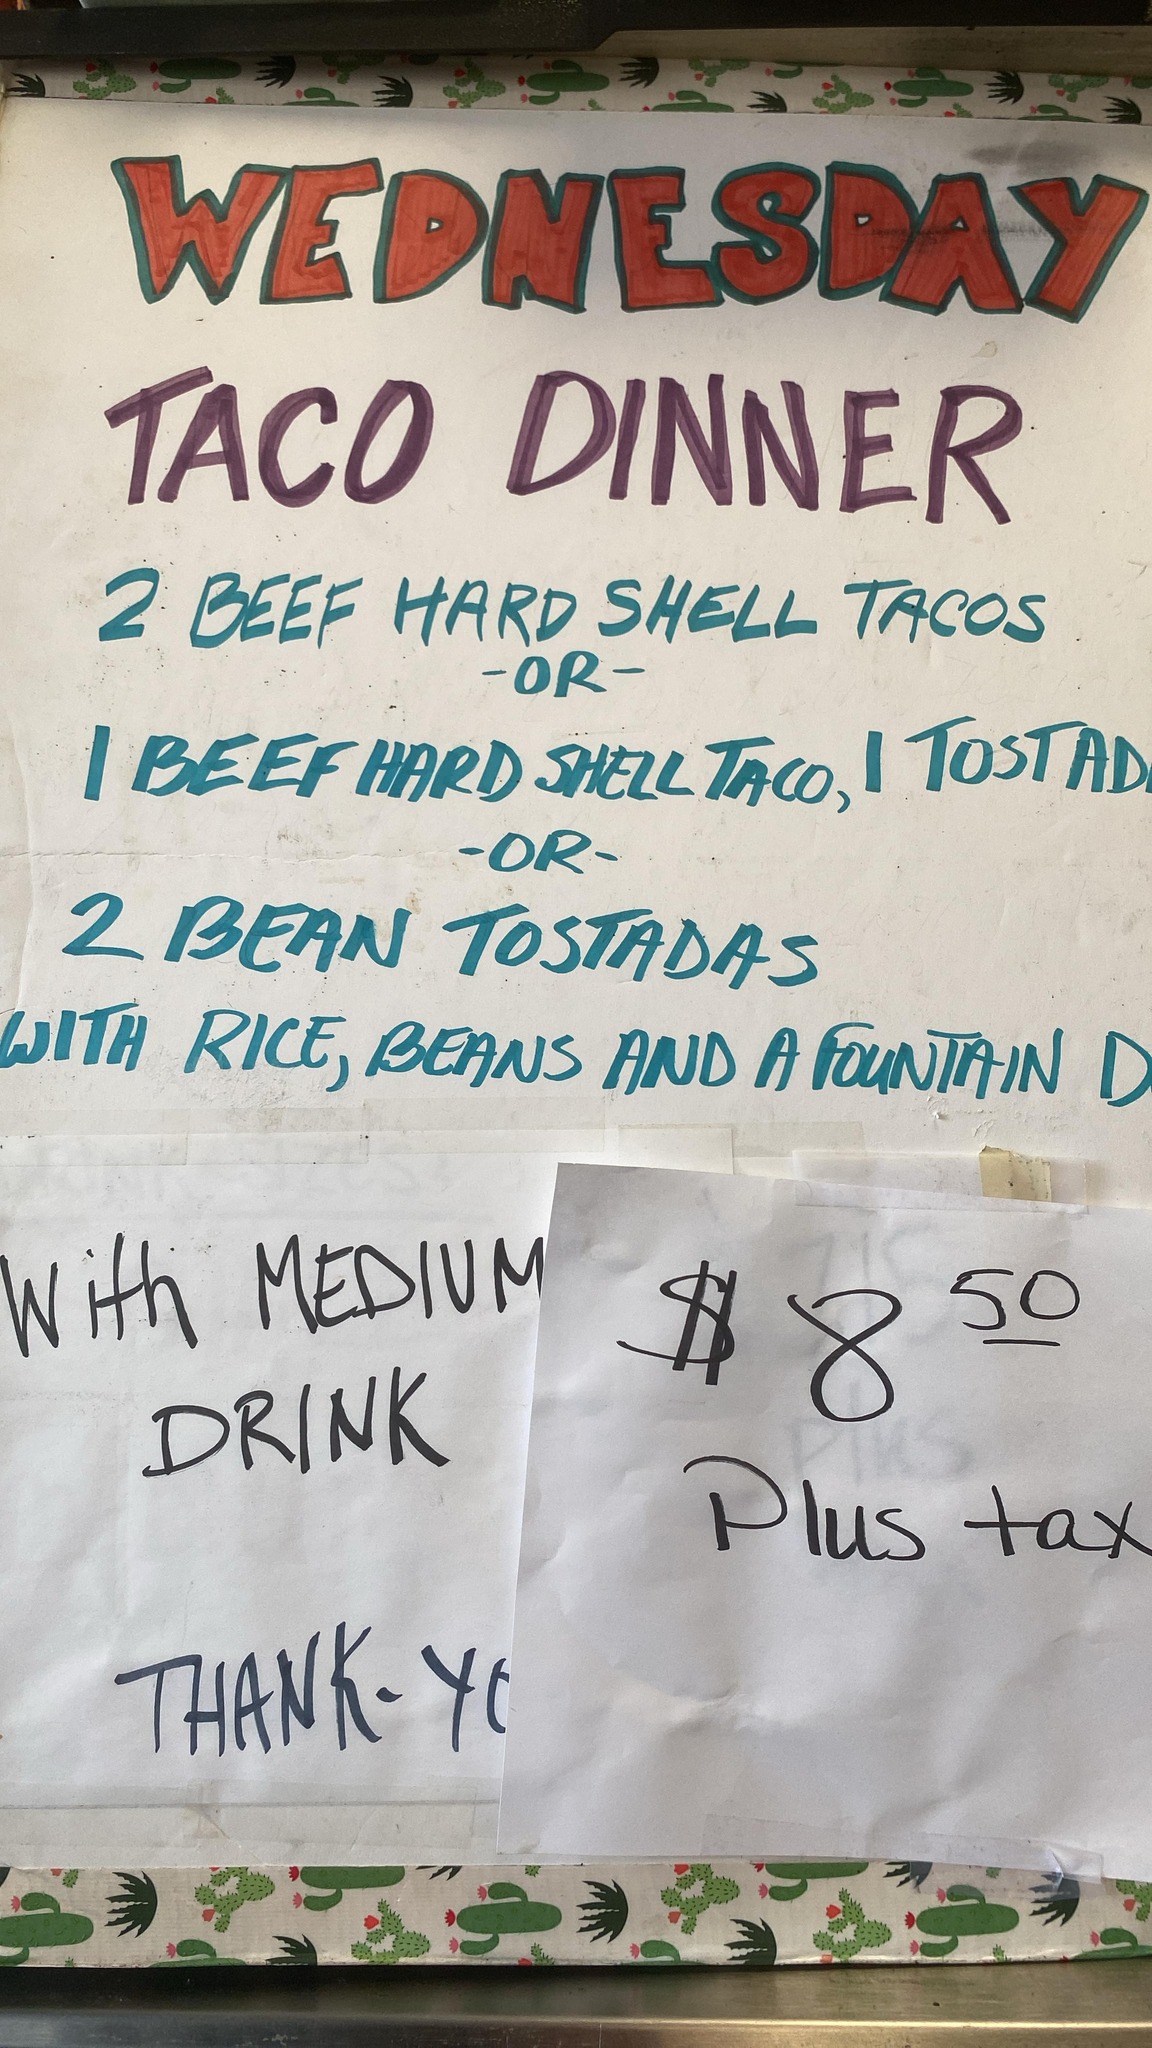 WEDNESDAY
TACO DINNER
2 BEEF HARD SHELL TACOS
-OR-
1 BEEF HARD SHELL TACO, 1 TOSTAD
-OR-
2 BEAN TOSTADAS
WITH RICE, BEANS AND A FOUNTAIN D
With MEDIUM
DRINK
THANK-YO
$8 50
Plus tax